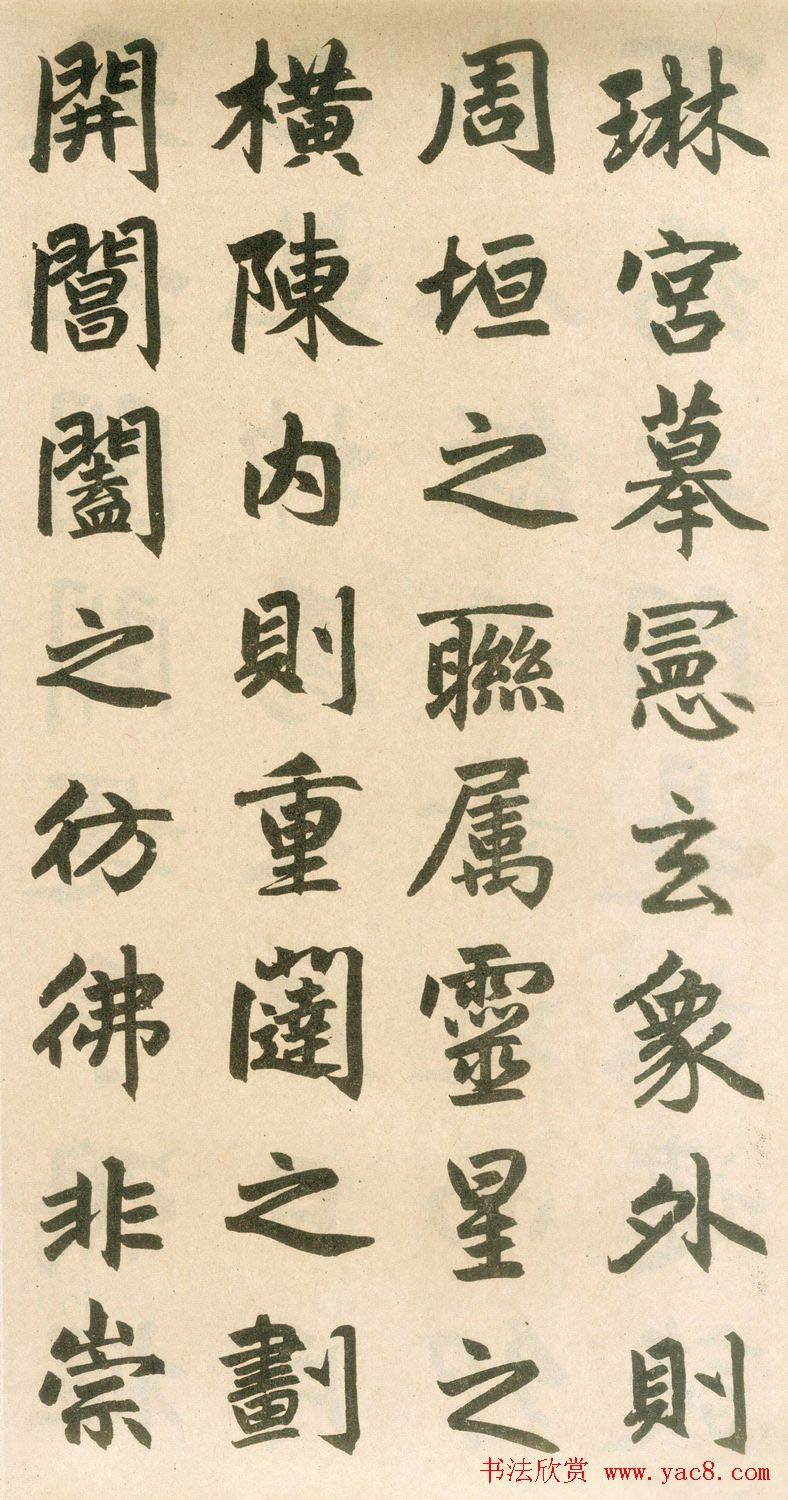 琳宮摹憲玄象外則
周垣之聯属靈星之
橫陳内則重闥之劃
開閶闔之彷彿非崇
书法欣赏 www.yac8.com